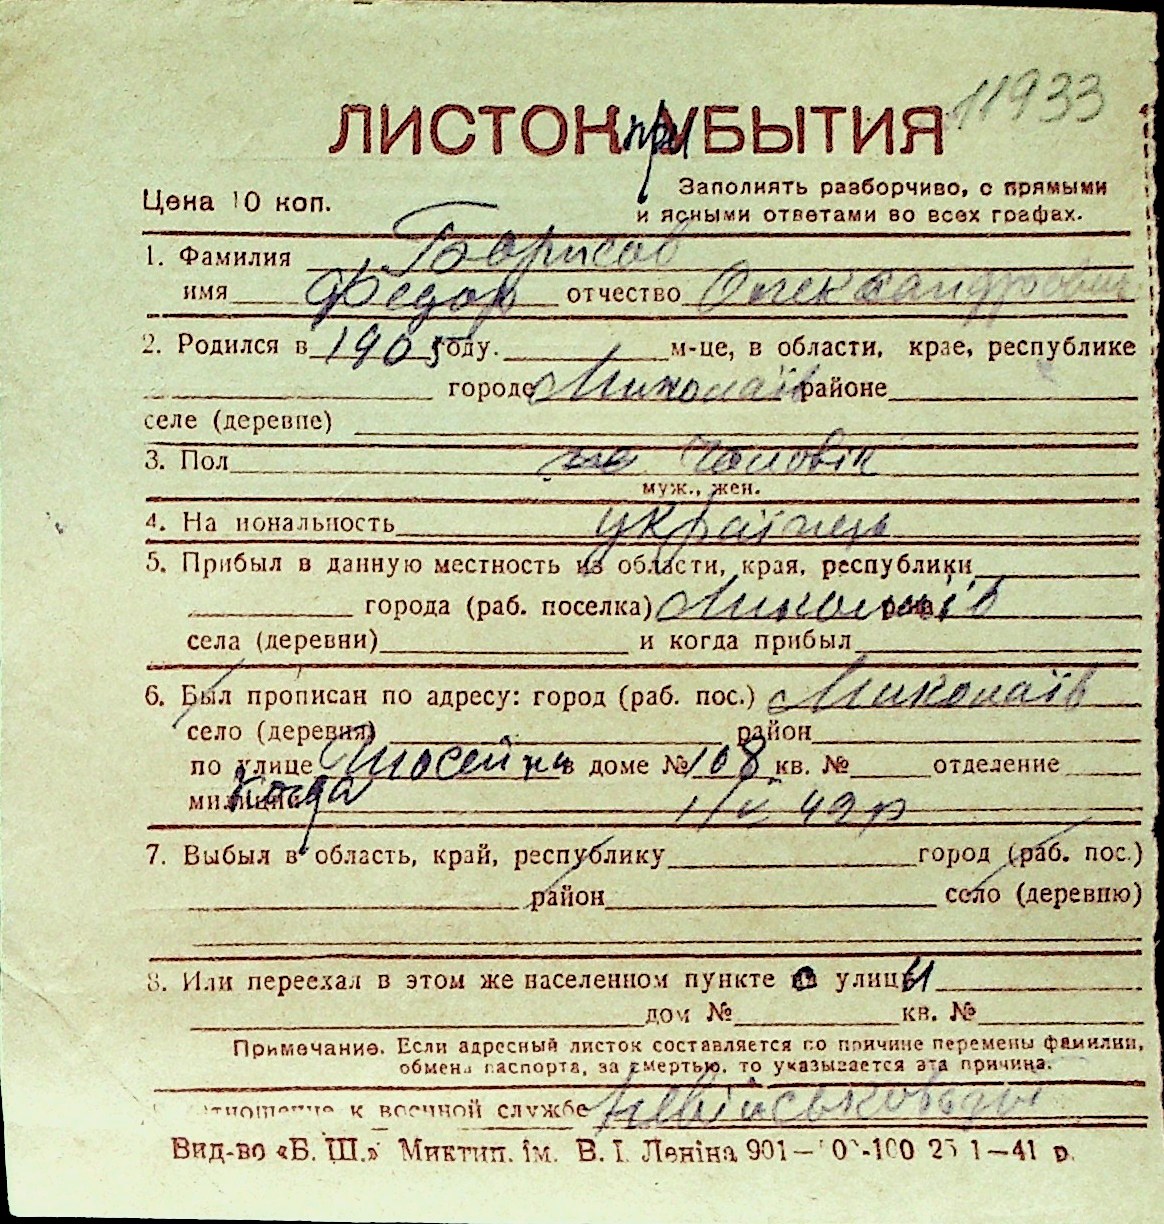 11933
ЛИСТОК при УБЫТИЯ
Цена 10 коп.
Заполнять разборчиво, с прямыми
и ясными ответами во всех графах.
1. Фамилия Борисов
имя Федор отчество Олександрович
2. Родился в 1905 году. м-це, в области, крае, республике
городе Миколаїв районе
селе (деревне)
3. Пол Чоловік
муж., жен.
4. На иональность українець
5. Прибыл в данную местность из области, края, республики
города (раб. поселка) Миколаїв
села (деревни) и когда прибыл
6. Был прописан по адресу: город (раб. пос.) Миколаїв
село (деревня) район
по улице Шосейна в доме № 108 кв. № отделение
милиции Когда 42 р
7. Выбыл в область, край, республику город (раб. пос.)
район село (деревню)
8. Или переехал в этом же населенном пункте с улицы
дом № кв. №
Примечание. Если адресный листок составляется по причине перемены фамилии,
обмена паспорта, за смертью, то указывается эта причина.
отношение к военной службе
Вид-во «Б. Ш.» Миктип. ім. В. І. Леніна 901—41 р.